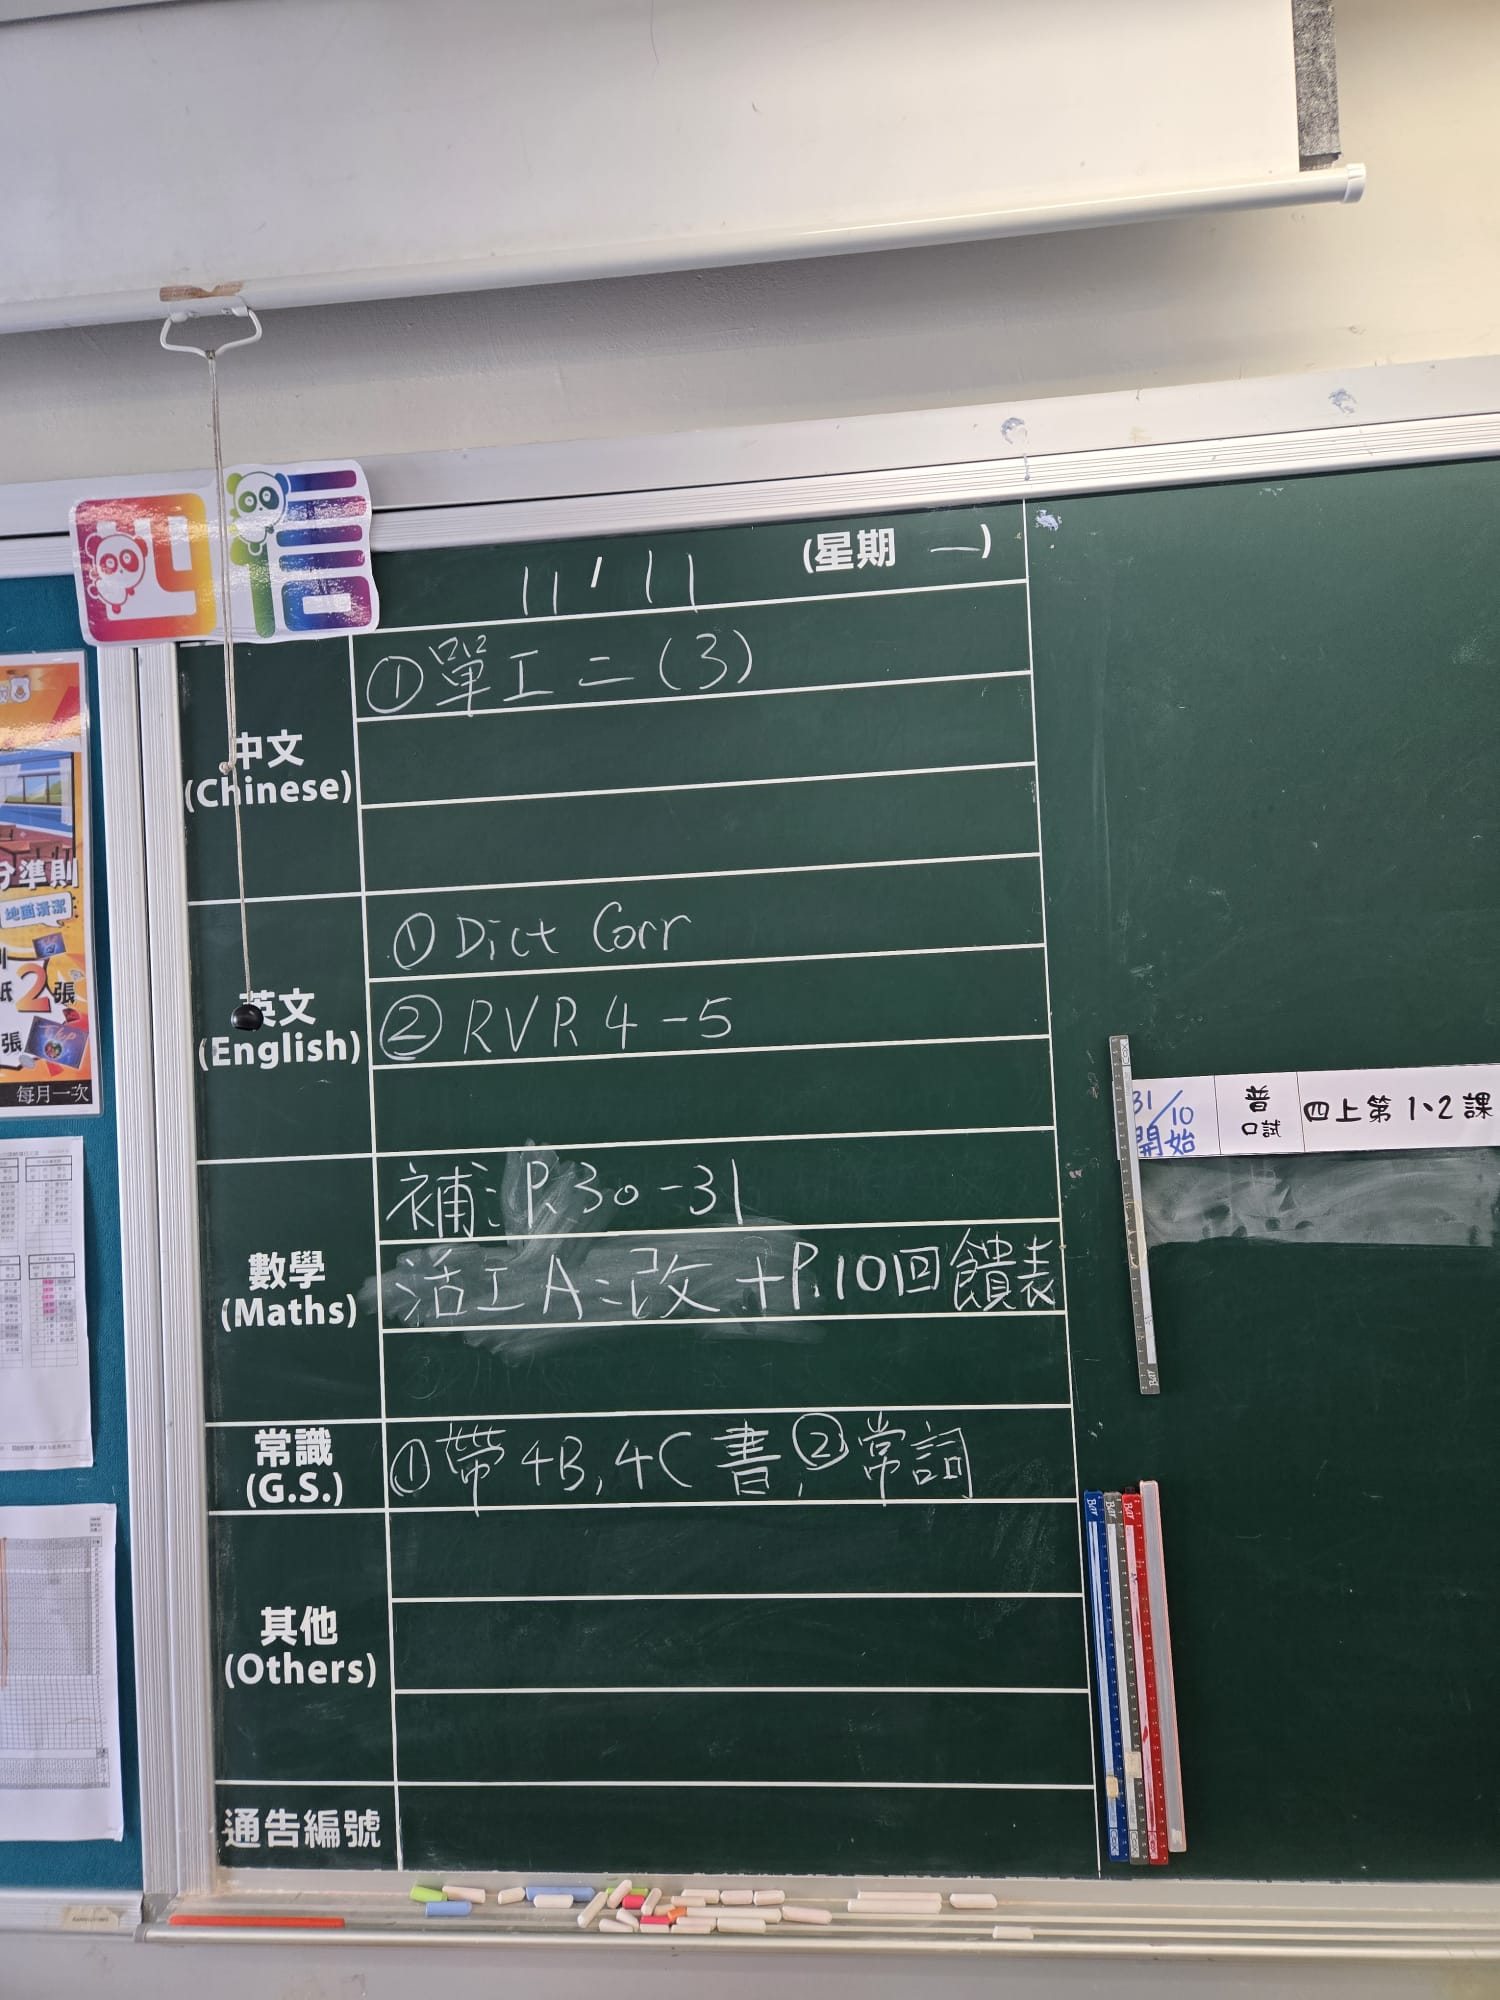 四信
11/11 (星期 一)
中文
(Chinese)
①單工二(3)
英文
(English)
①Dict Corr
②RVP.4-5
數學
(Maths)
補:P.30-31
活工A:改+P.10回饋表
常識
(G.S.)
①帶4B,4C書,②常詞
其他
(Others)
通告編號
31/10
開始
普
口試
四上第1、2課
準則
地面清潔
2張
張
每月一次